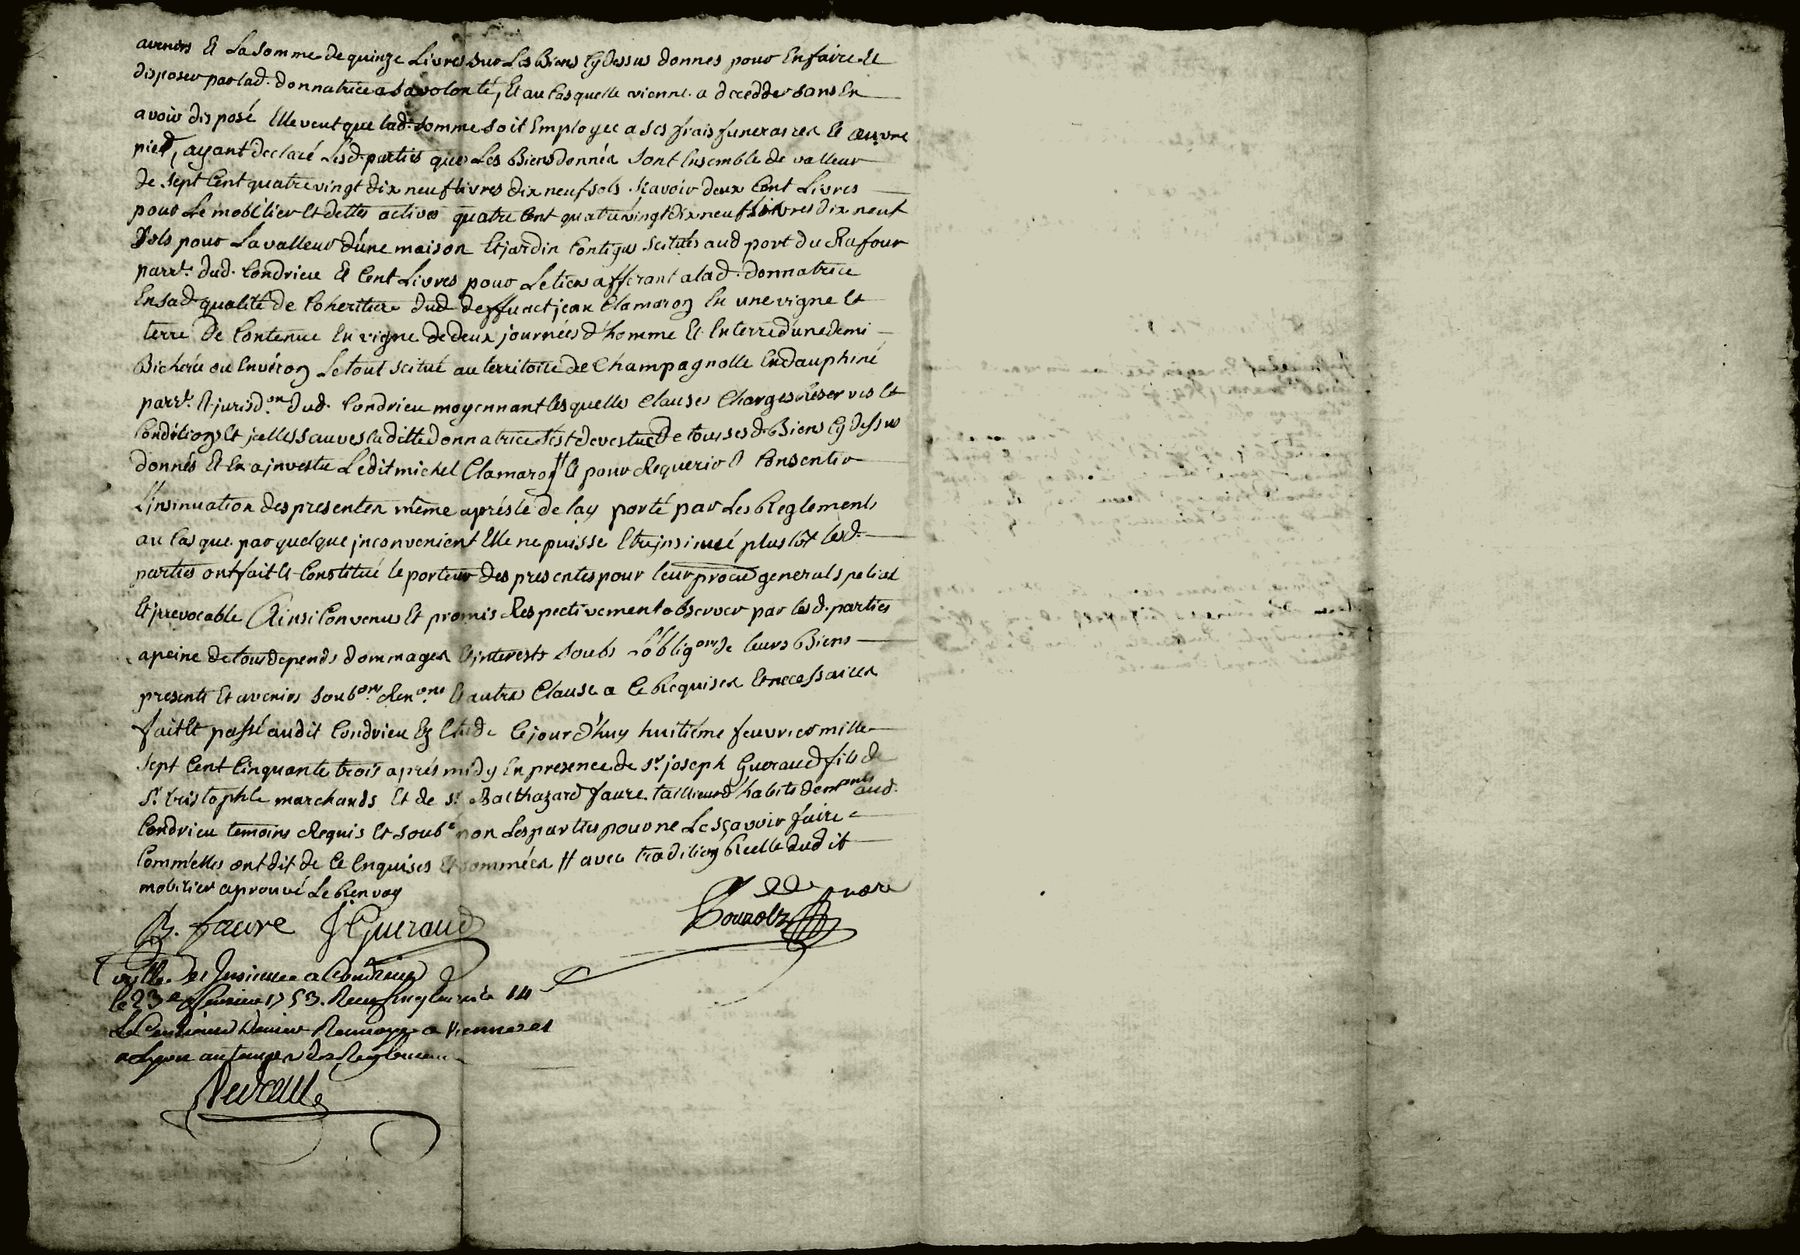 avenirs Et La somme de quinze Livres sur Les Biens Cy dessus donnes pour En faire Et
disposer par lad. donnatrice a sa volonté, Et au Cas quelle vienne a decedder sans En
avoir disposé Elle veut que lad. somme soit Employee a ses frais funeraires Et œuvre
pied, ayant declaré Lesd. parties que Les Biens donnés sont Ensemble de valleur
de sept Cent quatre vingt dix neuf Livres dix neuf sols scavoir deux Cent Livres
pour Le mobilier Et dettes actives quatre Cent quatre vingt dix neuf Livres dix neuf
sols pour La valleur d'une maison Et jardin Contigus scitués aud port du Rafour
parr.e dud. Condrieu Et Cent Livres pour Le tiers afferant a lad. donnatrice
En sad. qualité de Coheritiere dud deffunct jean Clamaron En une vigne Et
terre De Contenue En vigne de deux journées d'homme Et En terre d'une demi
Bicherée ou Environ Le tout scitué au territoire de Champagnolle En dauphiné
parr.e Et jurisd.on dud. Condrieu moyennant lesquelles Clauses Charges Reserves Et
Conditions Et jcelles sauves laditte donnatrice s'est devestue De tous sesd. Biens Cy dessus
donnés Et En a jnvestu Ledit michel Clamaron # Et pour Requerir Et Consentir
L'insinuation des presentes même aprés le delay porté par Les Reglements
au Cas que par quelque jnconvenient Elle ne puisse Etre jnsinué plustôt lesd.
parties ont fait Et Constitué le porteur des presentes pour leur procu.r general special
Et jrrevocable Ainsi Convenus Et promis Respectivement observer par lesd. parties
a peine de tous depends dommages Et interests soubs L'oblig.on de leurs Biens
presents Et avenirs soub.on Ren.on Et autres Clause a Ce Requises Et necessaires
fait Et passé audit Condrieu Ce jourd'huy huitiéme feuvrier mille
sept Cent Cinquante trois aprés midy En presence de s.r joseph Gueraud fils de
s.r Cristophle marchands Et de s.r Balthazard faure tailleur d'habits dem.ants aud.
Condrieu temoins Requis Et soub.é non Les parties pour ne Le sçavoir faire
Comm'elles ont dit de Ce Enquises Et sommées # avec tradition Reelle dudit
mobilier aprouvé Le Renvoy
B. faure J Gueraud
Insinué a Condrieu
le 23e feuvrier 1753. Recu
Le Centieme Denier Renvoyé a Vienne et
a Lyon au temps des Reglemens